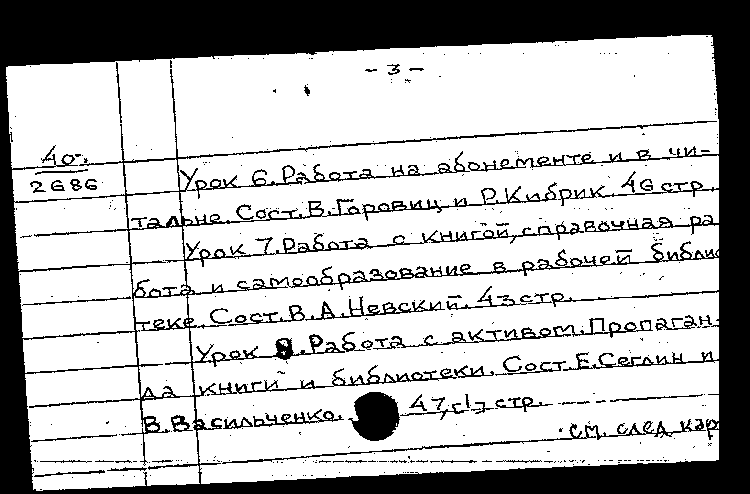 - 3 -
40.
2686
Урок 6. Работа на абонементе и в чи-
тальне. Сост. В. Горовиц и Р. Кибрик. 46 стр.
Урок 7. Работа с книгой, справочная ра
бота и самообразование в рабочей библи
теке. Сост. В. А. Невский. 43 стр.
Урок 8. Работа с активом. Пропаган-
да книги и библиотеки. Сост. Е. Сеглин и
В. Васильченко. 47, стр.
см. след кар